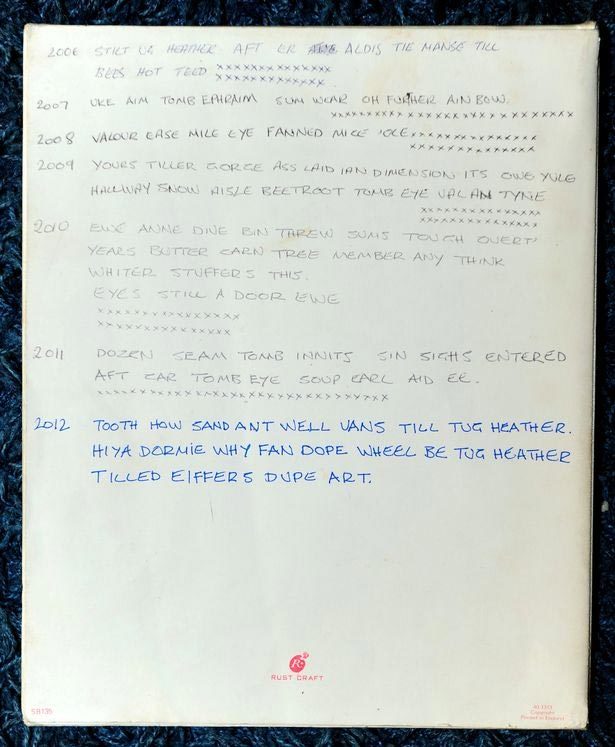 2006 STILT UG HEATHER AFT ER ALDIS TIE MANSE TILL
BEDS HOT TELD xxxxxxxxxxxxxxxx
xxxxxxxxxxxxxxxx
2007 UKE AIM TOMB EPHRAIM SUM WEAR OH FURHER AIN BOW.
xxxxxxxxxxxxxxxxxxxxxxxxxxx
2008 VALOUR EASE MILE EYE FANNED MICE 'OLE xxxxxxxxxxxxxxxx
xxxxxxxxxxxxxxxx
2009 YOURS TILLER GORGE ASS LAID IAN DIMENSION ITS OWE YULE
HALLWAY SNOW AISLE BEETROOT TOMB EYE VALAN TYNE
xxxxxxxxxxxxxxx
xxxxxxxxxxxxxxx
2010 EWE ANNE DINE BIN THREW SUMS TOUGH OVERT
YEARS BUTTER EARN TREE MEMBER ANY THINK
WHITER STUFFERS THIS.
EYES STILL A DOOR EWE
xxxxxxxxxxxxxxxx
xxxxxxxxxxxxxxx
2011 DOZEN SEAM TOMB INNITS SIN SIGHS ENTERED
AFT EAR TOMB EYE SOUP EARL AID EE.
xxxxxxxxxxxxxxxxxxxxxxxxxxxxxxxx
2012 TOOTH HOW SAND ANT WELL VANS TILL TUG HEATHER.
HIYA DORMIE WHY FAN DOPE WHEEL BE TUG HEATHER
TILLED EIFFERS DUPE ART.
RC
RUST CRAFT
SB135
Copyright
Printed in England